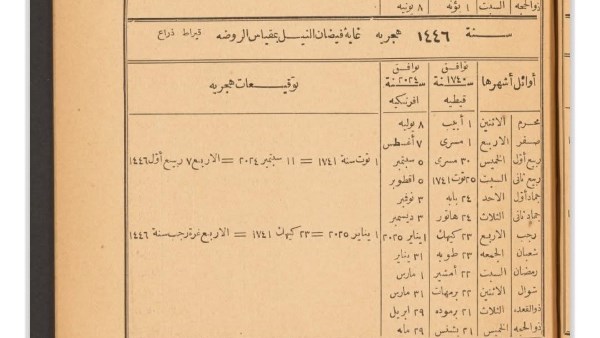 ذوالحجه السبت ١ بؤنه ٨ يونيه
سنة ١٤٤٦ هجريه غاية فيضان النيل بمقياس الروضه قيراط ذراع
أوائل أشهرها توافق سنة ١٧٤٠ قبطيه توافق سنة ٢٠٢٤ افرنكيه توقيعات هجريه
محرم الاثنين ١ أبيب ٨ يوليه
صفر الاربع ١ مسرى ٧ أغسطس
ربيع أول الخميس ٣٠ مسرى ٥ سبتمبر ١ توت سنة ١٧٤١ = ١١ سبتمبر ٢٠٢٤ = الاربع ٧ ربيع أول ١٤٤٦
ربيع ثانى السبت ٢٥ توت ١٧٤١ ٥ اقطوبر
جمادأول الاحد ٢٤ بابه ٣ نوفمبر
جمادثانى الثلاث ٢٤ هاتور ٣ ديسمبر
رجب الاربع ٢٣ كيهك ١ يناير ٢٠٢٥ ١ يناير ٢٠٢٥ = ٢٣ كيهك ١٧٤١ = الاربع غرة رجب سنة ١٤٤٦
شعبان الجمعه ٢٣ طوبه ٣١ يناير
رمضان السبت ٢٢ أمشير ١ مارس
شوال الاثنين ٢٢ برمهات ٣١ مارس
ذوالقعده الثلاث ٢١ برموده ٢٩ ابريل
ذوالحجه الخميس ٢١ بشنس ٢٩ مايه